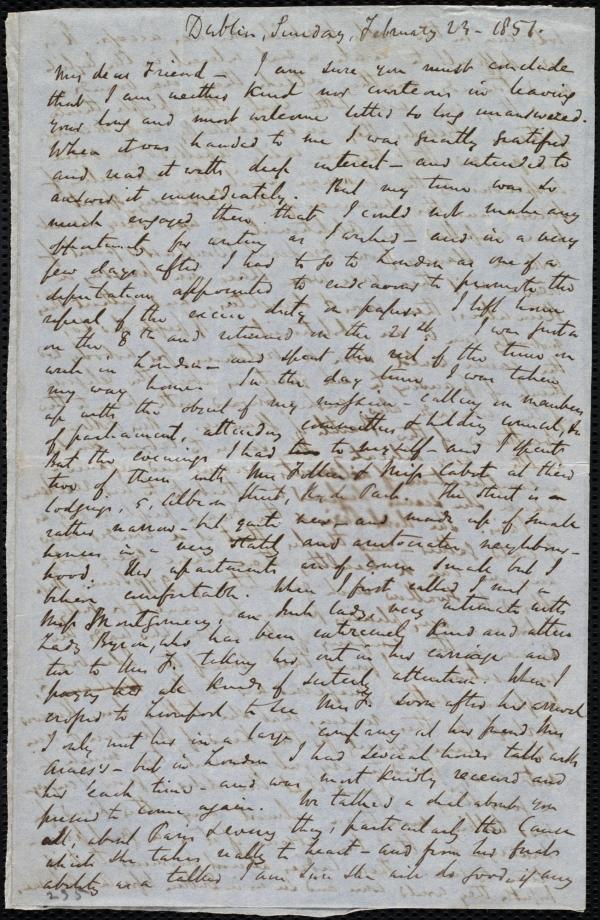 Dublin, Sunday, February 23 - 1851.
My dear Friend - I am sure you must conclude
that I am neither kind nor courteous in leaving
your long and most welcome letter so long unanswered.
When it was handed to me I was greatly gratified
and read it with deep interest - and intended to
answer it immediately. But my time was so
much engaged then that I could not make any
opportunity for writing as I wished - and in a very
few days after I had to go to London as one of a
deputation appointed to endeavour to promote the
repeal of the excise duty on paper. I left home
on the 8th and returned on the 21st. I was just a
week in London - and spent the rest of the time on
my way home. In the day time I was taken
up with the object of my mission - calling on members
of parliament, attending committees & holding council, &c
But the evenings I had to myself - and I spent
two of them with Mrs Follen & Miss Cabot at their
lodgings, 5, Albion Street, Hyde Park. The street is
rather narrow - but quite new - and made up of small
houses in a very stately and aristocratic neighbour-
hood. Her apartments are small but I
believe comfortable. When I first called I met a
Miss Montgomery, an Irish lady, very intimate with
Lady Byron, who has been extremely kind and atten
tive to Mrs F. taking her out in her carriage and
paying her all kinds of sisterly attention. When I
crossed to Liverpool to see Mrs F. soon after her arrival
I only met her in a large company at her friend Mrs
- but in London I had several hours talk with
her each time - and was most kindly received and
pressed to come again. We talked a deal about you
all, about Paris & every thing, particularly the Cause
which she takes really to heart - and from her great
ability as a talker I am sure she will do good, if any